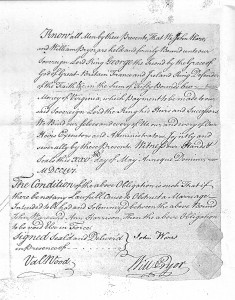 Know all Men by these Presents, That We John Wood
and William Edgar are held and firmly Bound unto our
Sovereign Lord King George the Second by the Grace of
God of Great Britain France and Ireland King Defender
of the Faith &c in the Sum of Fifty Pounds Current
Money of Virginia, which Payment to be made to our
said Sovereign Lord the King his Heirs and Successors
We Bind our selves and every of Us our and every of our
Heirs Executors and Administrators Jointly and
severally by these Presents. Witness our Hands &
Seals this Day of May Annoque Domini
The Condition of the above Obligation is such That if
there be not any Lawfull Cause to Obstruct a Marriage
Intended to be Had and Solemnized between the above Bound
John and Ann Garrison, Then the above Obligation
to be void Else in Force.
Signed Sealed and Delivered
in Presence of
John
Val Wood
Will Edgar